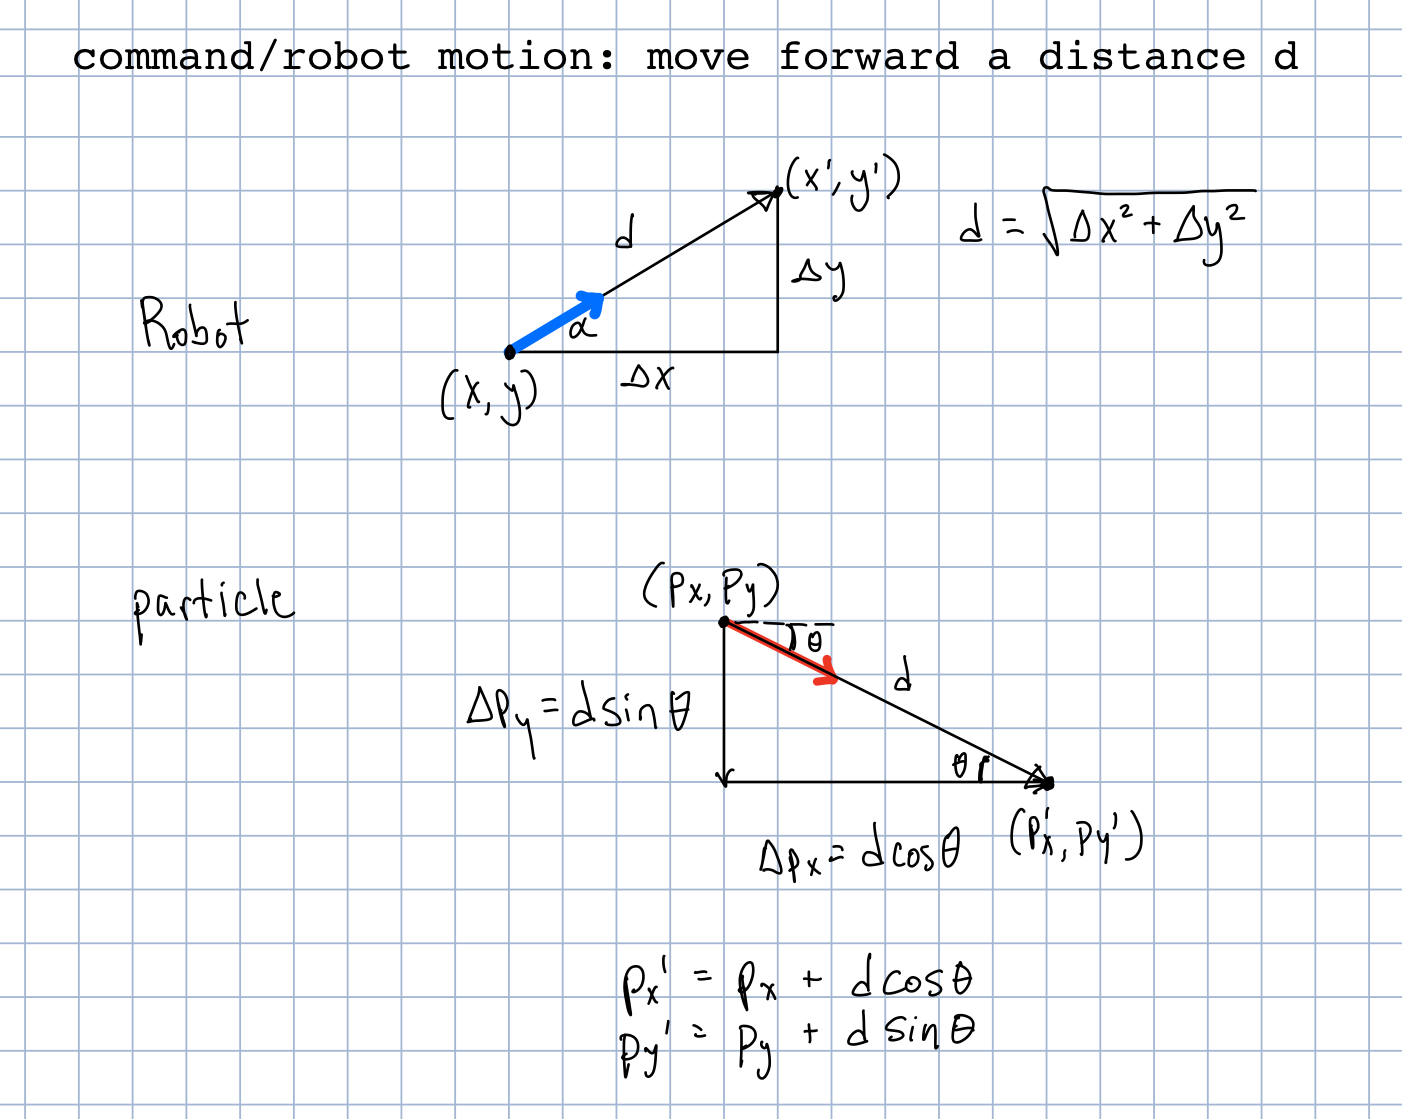 command/robot motion: move forward a distance d
(x', y')
d = √Δx² + Δy²
d
Δy
Robot
α
Δx
(x, y)
(Px, Py)
particle
θ
d
ΔPy = d sin θ
θ
(Px', Py')
ΔPx = d cos θ
Px' = Px + d cos θ
Py' = Py + d sin θ